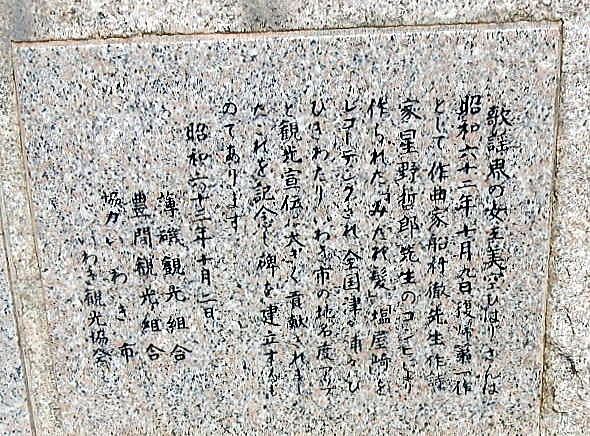 歌謡界の女王美空ひばりさんは
昭和六十二年十月九日復帰第一作
として作曲家船村徹先生作詩
家星野哲郎先生のコンビにより
作られた「みだれ髪」塩屋崎を
レコーディングされ、全国津々浦々に
ひびきわたりいわき市の地名度アップ
と観光宣伝に大きく貢献されまし
たこれを記念し碑を建立するも
のであります
昭和六十三年十月二日
薄磯観光組合
豊間観光組合
協力いわき市
いわき観光協会